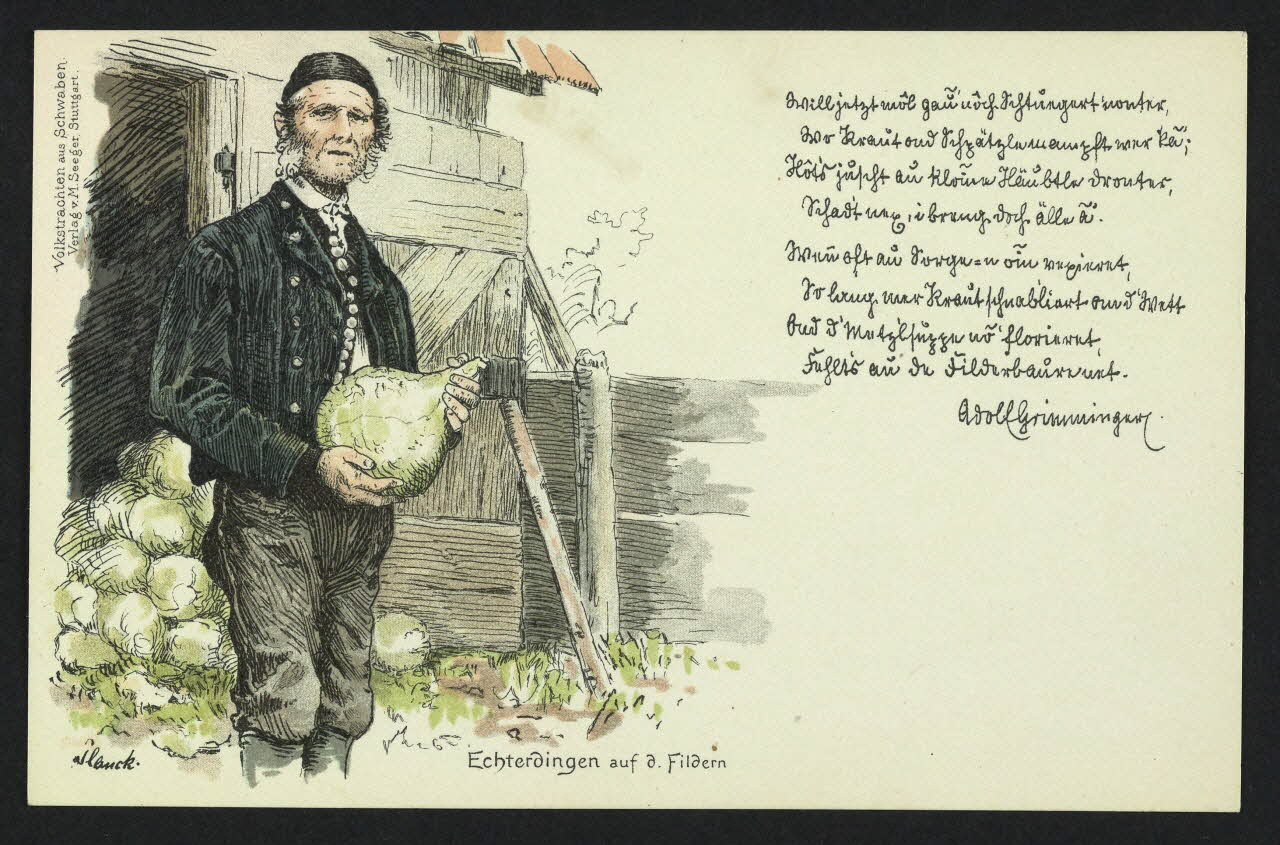 Volkstrachten aus Schwaben.
Verlag v. M. Seeger, Stuttgart.
Will jetzt môl gau' nôch Schtuegert nonter,
Wo Kraut ond Schpätzle mampft wer kā';
Hôt's juscht au kloine Häubtle dronter,
Schadt nex, i breng doch älle ā'.
Wenn oft au Sorge=n oin vexieret,
So lang mer Kraut schnabliert om d'Wett
Ond d'Metzelsuppe nô' florieret,
Fehlt's au de Filderbaure net.
Adolf Grimminger.
Planck.
Echterdingen auf d. Fildern